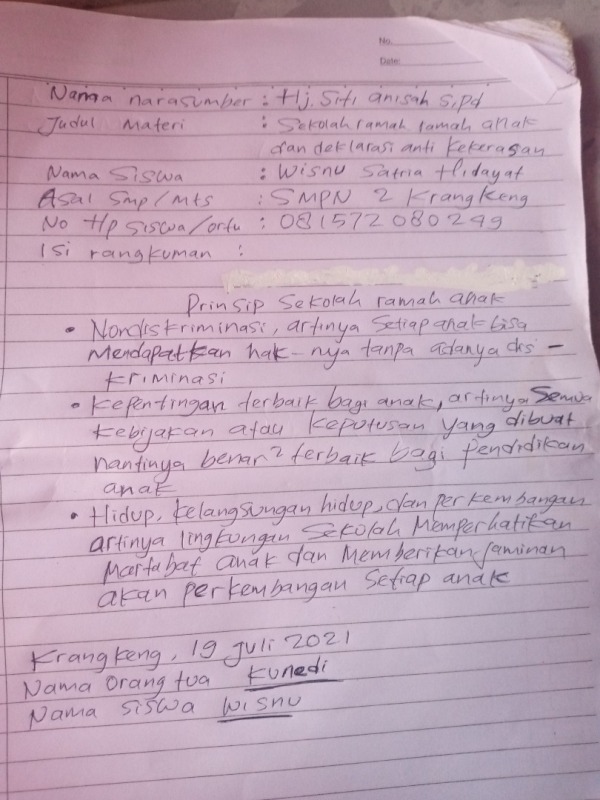 No.
Date:
Nama narasumber : Hj. Siti anisah S.Pd
Judul Materi : Sekolah ramah ramah anak
dan deklarasi anti kekerasan
Nama Siswa : Wisnu Satria Hidayat
Asal Smp/Mts : SMPN 2 Krangkeng
No Hp siswa/ortu : 081572080249
Isi rangkuman :
Prinsip Sekolah ramah anak
• Nondiskriminasi, artinya Setiap anak bisa
Mendapatkan hak-nya tanpa adanya dis-
kriminasi
• Kepentingan terbaik bagi anak, artinya Semua
Kebijakan atau Keputusan yang dibuat
nantinya benar2 terbaik bagi pendidikan
anak
• Hidup, kelangsungan hidup, dan perkembangan
artinya lingkungan Sekolah Memperhatikan
Martabat anak dan Memberikan jaminan
akan perkembangan Setiap anak
Krangkeng, 19 Juli 2021
Nama Orang tua Kunedi
Nama Siswa Wisnu